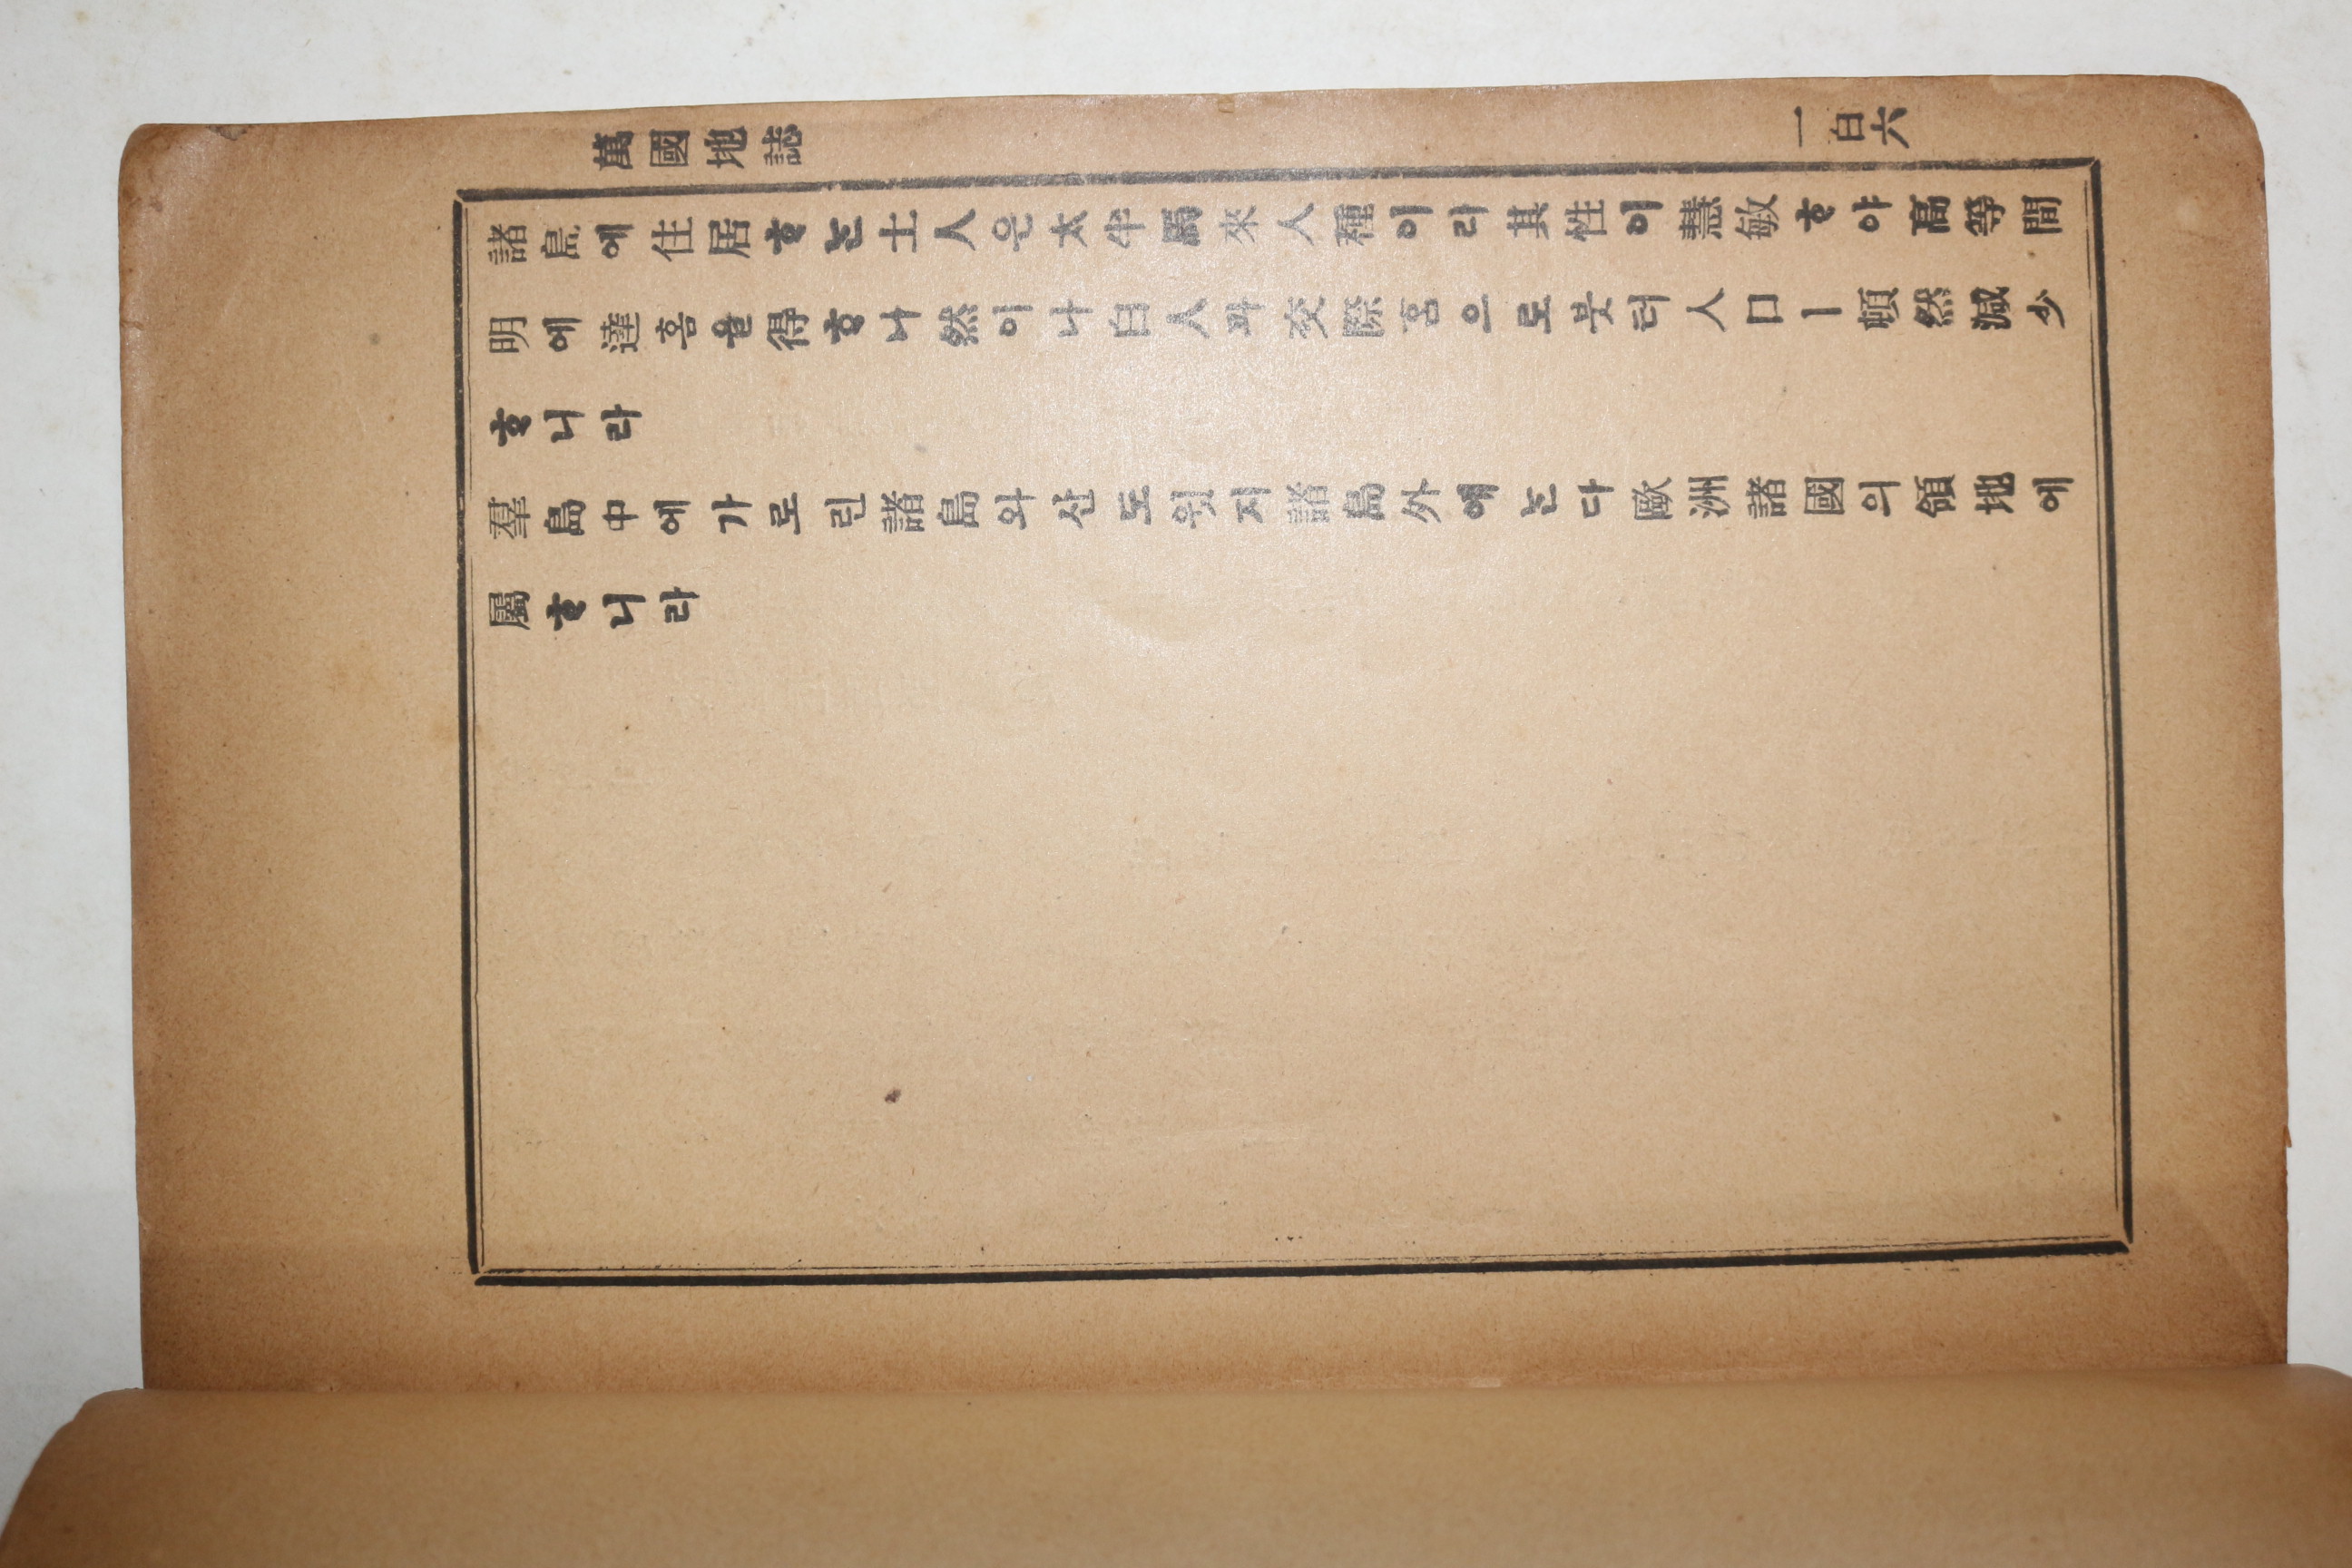 萬國地誌
一百六
諸島에住居ᄒᆞᄂᆞᆫ土人은太半馬來人種이라其性이慧敏ᄒᆞ야高等間
明에達홈을得ᄒᆞ나然이나白人과交際홈으로붓터人口ㅣ頓然減少
ᄒᆞ니라
羣島中에가로린諸島와산도윗지諸島外에ᄂᆞᆫ다歐洲諸國의領地에
屬ᄒᆞ니라